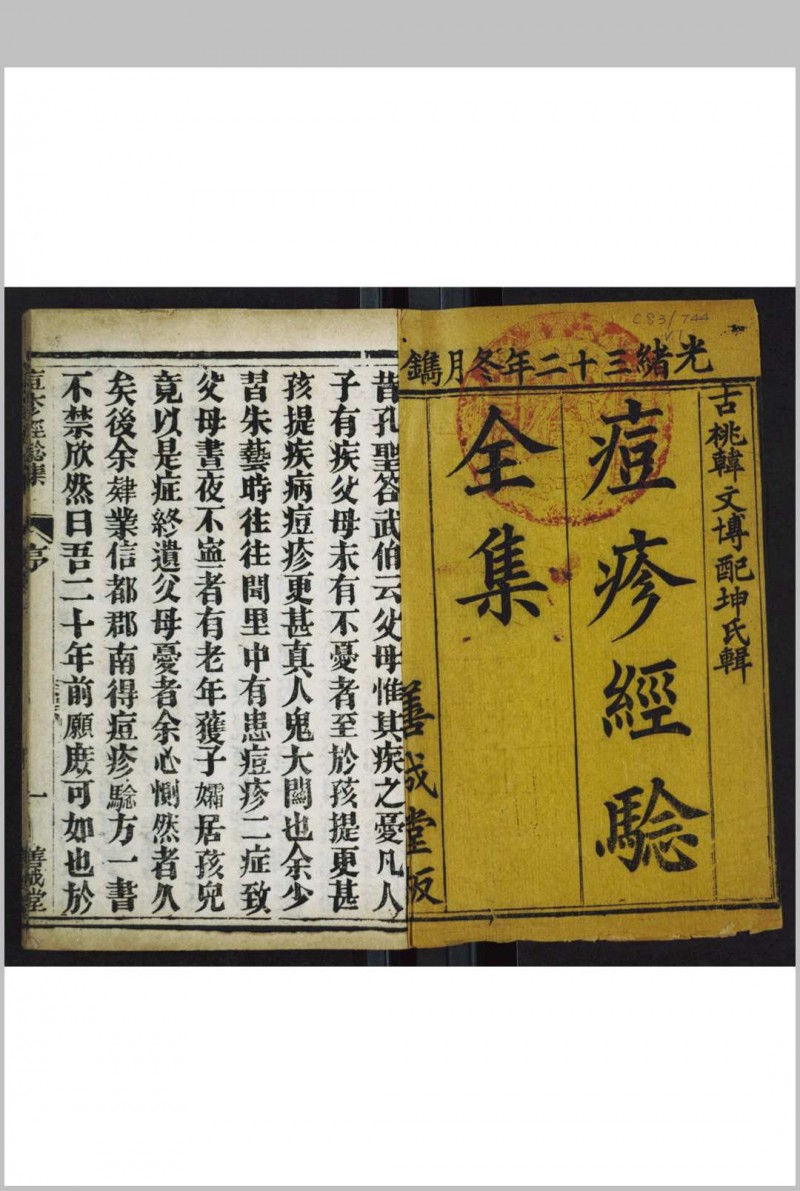 C83/744
V.1
光緒三十二年冬月鐫
古桃韓文博配坤氏輯
痘疹經驗
全集
善成堂板
昔孔聖答武伯云父母惟其疾之憂凡人
子有疾父母未有不憂者至於孩提更甚
孩提疾病痘疹更甚真人鬼大關也余少
習朱藝時往往閭里中有患痘疹二症致
父母晝夜不寍者有老年獲子孀居孩兒
竟以是症終遺父母憂者余心惻然者久
矣後余肄業信都郡南得痘疹驗方一書
不禁欣然曰吾二十年前願庶可如也於
痘疹經驗集
序
一
善成堂